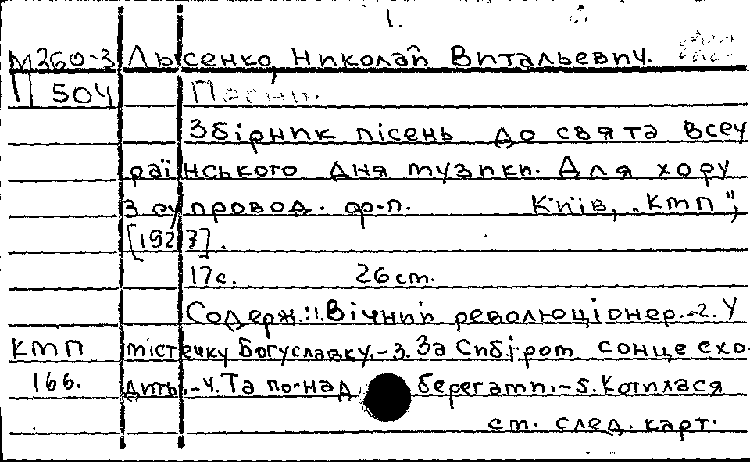 1.
М260-3 Лысенко, Николай Витальевич.
П 504 Пісні.
Збірник пісень до свята всеу
раїнського дня музики. Для хору
з супровод. ф-п. Київ, "КМП",
[1927].
17с. 26см.
Содерж.: 1. Вічний революціонер.-2. У
КМП містечку Богуславку.-3. За Сибіром сонце схо
166. дить.-4. Та по-над берегами.-5. Котилася
см. след. карт.